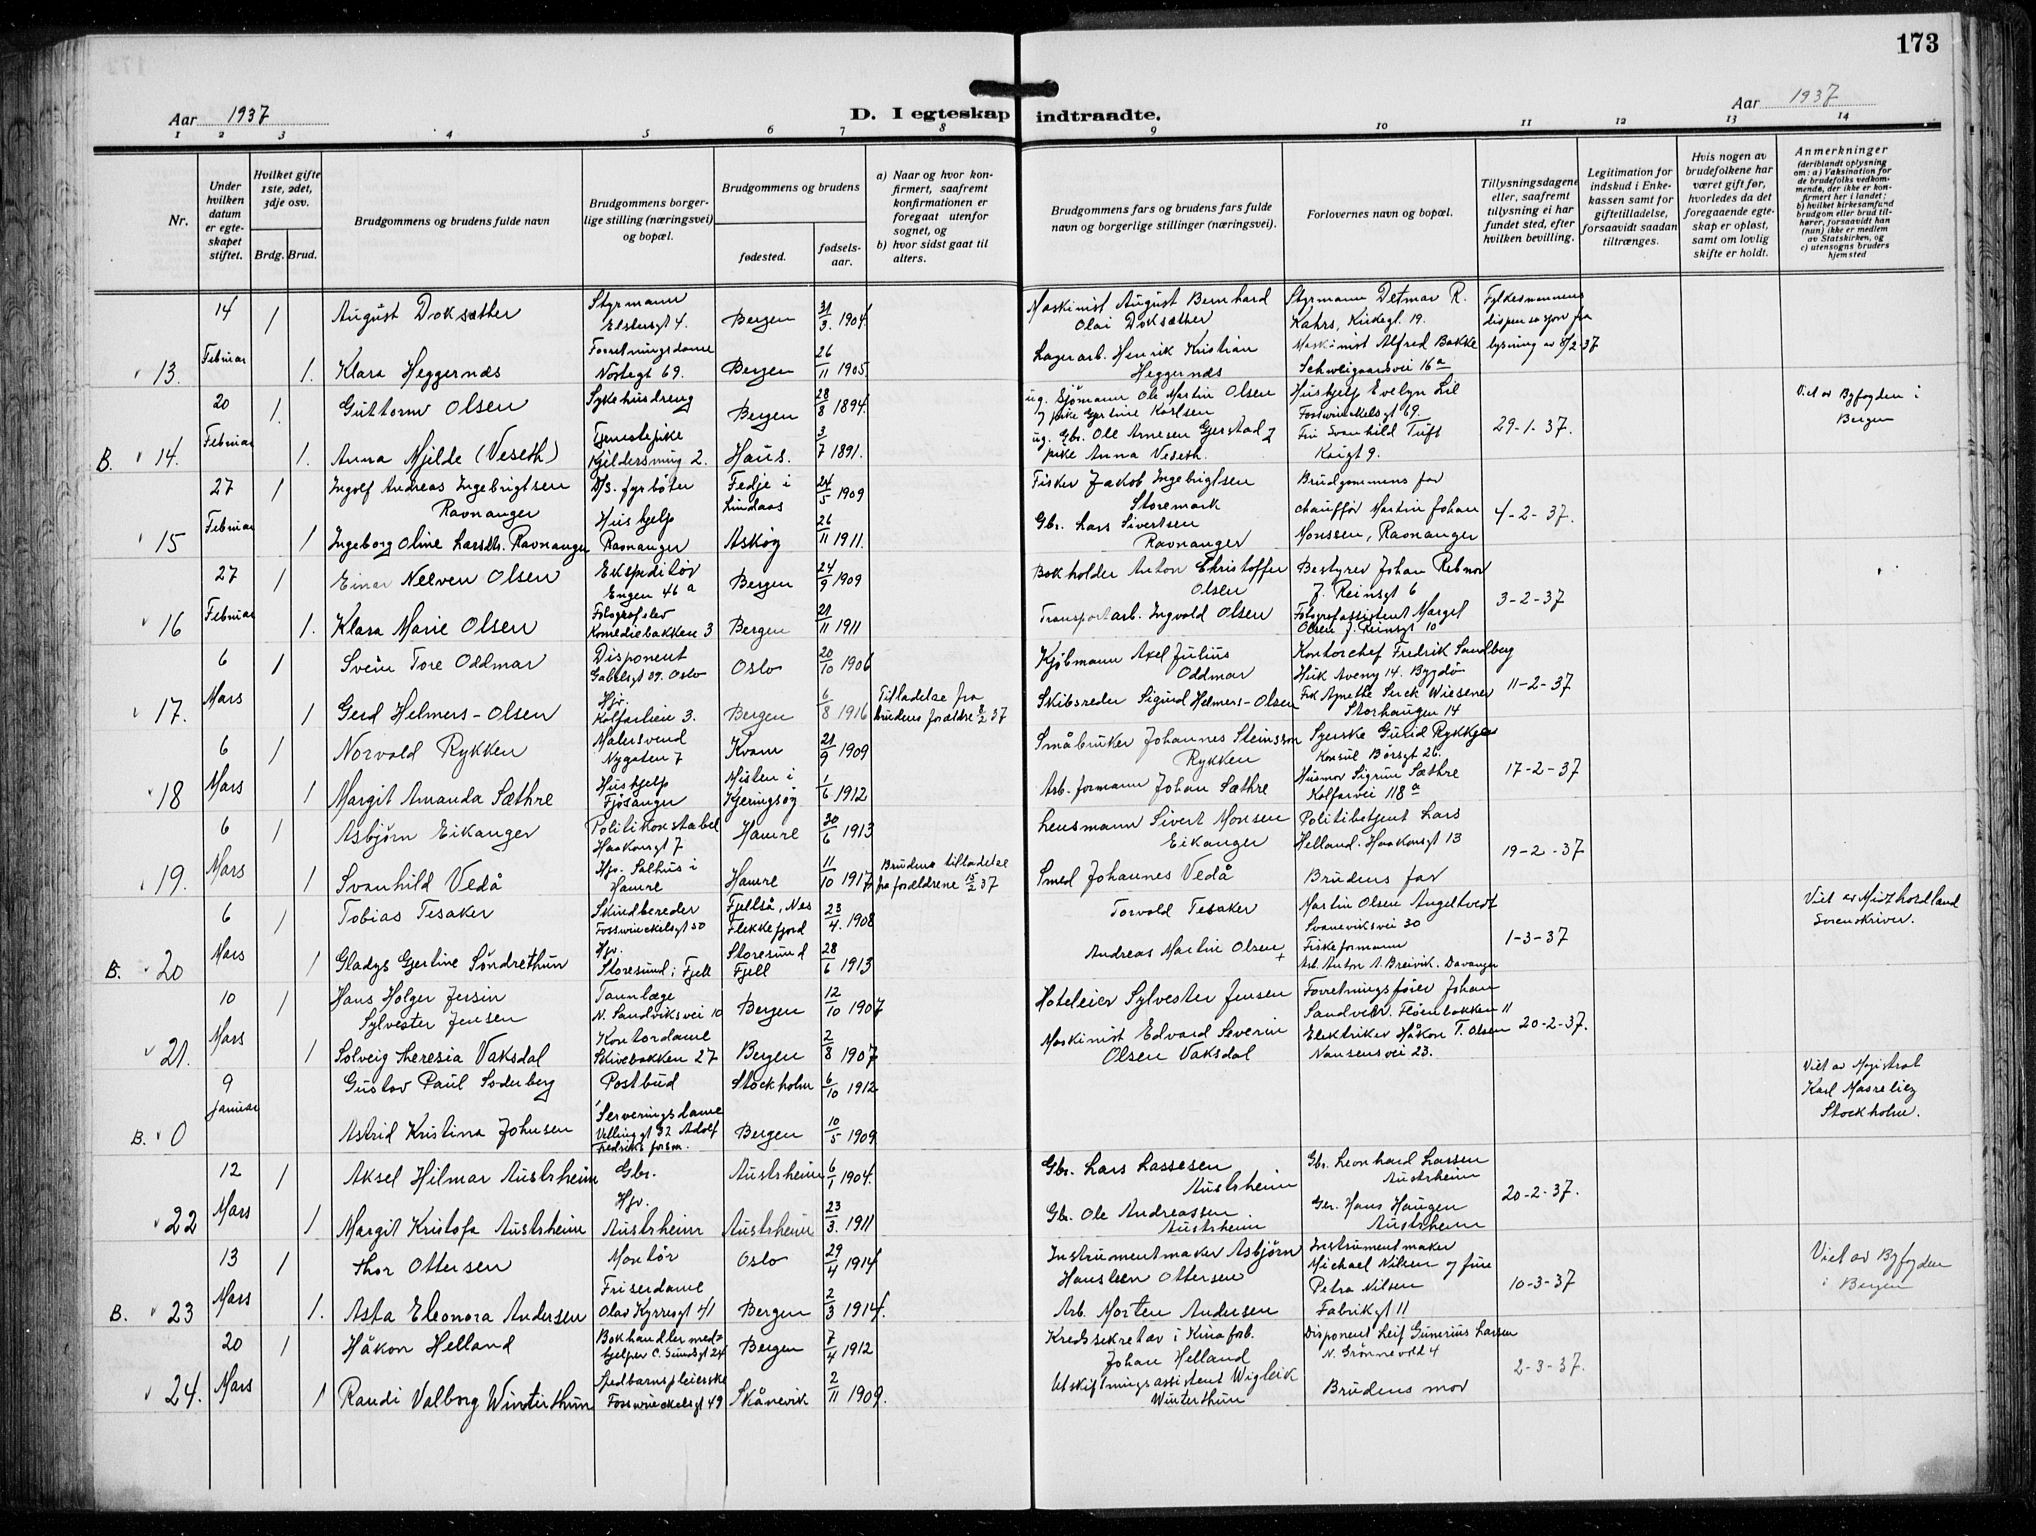 173
Aar 1937
D. I egteskap indtraadte.
Aar 1937
1 2 3 4 5 6 7 8 9 10 11 12 13 14
Nr.
Under hvilken datum er egteskapet stiftet.
Hvilket gifte 1ste, 2det, 3dje osv.
Brdg. Brud.
Brudgommens og brudens fulde navn
Brudgommens borgerlige stilling (næringsvei) og bopæl.
Brudgommens og brudens
fødested.
fødselsaar.
a) Naar og hvor konfirmert, saafremt konfirmationen er foregaat utenfor sognet, og
b) hvor sidst gaat til alters.
Brudgommens fars og brudens fars fulde navn og borgerlige stillinger (næringsvei).
Forlovernes navn og bopæl.
Tillysningsdagene eller, saafremt tillysning ei har fundet sted, efter hvilken bevilling.
Legitimation for indskud i Enkekassen samt for giftetilladelse, forsaavidt saadan tiltrænges.
Hvis nogen av brudefolkene har været gift før, hvorledes da det foregaaende egteskap er opløst, samt om lovlig skifte er holdt.
Anmerkninger (deriblandt oplysning om: a) Vaksination for de brudefolks vedkommende, der ikke er konfirmert her i landet; b) hvilket kirkesamfund brudgom eller brud tilhører, forsaavidt han (hun) ikke er medlem av Statskirken, og c) utensogns bruders hjemsted
14 1 August Doksæther Styrmann Elstersgt 4. Bergen 31/3. 1904 Maskinist August Bernhard Olai Doksæther Styrmann Detmar R. Kahrs, Kirkegt. 19. Fylkesmannens dispensasjon fra
13. Februar 1. Klara Heggernæs Forretningsdame Nøstegt 69. Bergen 26/11 1905 Lagerarb. Henrik Kristian Heggernæs Maskinist Alfred Bakke Schweigaardsvei 16a lysning av 8/2-37
20 1. Guttorm Olsen Sykehusdreng Bergen 28/8 1894. ug. Sjømann Ole Martin Olsen og pike Gjertine Karlsen Hushjelp Evelyn Lil Fosswinckelsgt 69. 29-1-37. Viet av Byfogden i Bergen
B. 14. Februar 1. Anna Mjelde (Veseth) Tjenestepike Kjeldersmug 2. Haus. 3/7 1891. ug. Gbr. Ole Arnesen Gjerstad og pike Anna Veseth. Frk Svanhild Tuft Krigt 9.
27 1 Ingolf Andreas Ingebrigtsen Ravnanger D/S. fyrbøter Fedje i Lindaas 24/5 1909 Fisker Jakob Ingebrigtsen Storemark Brudgommens far 4-2-37.
15 Februar 1 Ingeborg Oline Larsdtr. Ravnanger Hushjelp Ravnanger Askøy 26/11 1911. Gbr. Lars Sivertsen Ravnanger chauffør Martin Johan Monssen, Ravnanger
27 1 Einar Nelven Olsen Ekspeditør Engen 46a Bergen 24/9 1909 Bokholder Anton Christoffer Olsen Bestyrer Johan Rebnor J. Reinsgt 6 3-2-37
16 Februar 1. Klara Marie Olsen Fotografelev Komediebakken 3 Bergen 21/11 1911 Transportarb. Ingvald Olsen Fotografassistent Margit Olsen J. Reinsgt 10
6 1 Svein Tore Oddmar Disponent Gabelsgt 39. Oslo Oslo 20/10 1906 Kjøbmann Axel Julius Oddmar Kontorchef Fredrik Sandberg Huk Aveny 14. Bygdø 11-2-37
17. Mars 1 Gerd Helmers-Olsen Hjv. Kalfarlien 3. Bergen 6/8 1916 Tilladelse fra brudens forældre 8/2 37 Skibsreder Sigurd Helmers-Olsen Frk Agnethe Wiesener Storhaugen 14
6 1 Norvald Rykken Malersvend Nygaten 7 Kvam 21/9 1909 Småbruker Johannes Steinsson Rykken Syerske Gurid Rykkje Konsul Børsgt 26. 17-2-37
18 Mars 1 Margit Amanda Sæthre Hushjelp Fjøsanger Misten i Kjeringøy 1/6 1912 Arb. formann Johan Sæthre Husmor Sigrun Sæthre Kalfarvei 118a
6 1 Asbjørn Eikanger Politikonstabel Haakonsgt 7 Hamre 30/6 1913 Lensmann Sivert Monsen Eikanger Politibetjent Lars Helland. Haakonsgt 13 19-2-37
19. Mars 1 Svanhild Vedå Hjv. Salhus i Hamre Hamre 11/10 1917 Brudens tilladelse fra forældrene 15/2 37 Smed Johannes Vedå Brudens far
6 1 Tobias Tesaker Skindbereder Fosswinckelsgt 50 Fjellså, Nes Flekkefjord 23/4. 1908 Torvald Tesaker Martin Olsen Angeltvedt Svaneviksvei 30 1-3-37 Viet av Midthordland Sorenskriver.
B. 20 Mars 1 Gladys Gjertine Søndrethun Hjv. Storesund i Fjell Storesund Fjell 28/6 1913 Andreas Martin Olsen + Fiskeformann Arb. Anton A. Breivik. Davanger
10 1 Hans Holger Jersin Sylvester Jensen Tannlæge N. Sandviksvei 10 Bergen 12/10 1907 Hoteleier Sylvester Jensen Forretningsfører Johan Sandvik. Fløenbakken 11
21. Mars 1 Solveig Theresia Vaksdal Kontordame Skivebakken 27 Bergen 2/8 1907 Maskinist Edvard Severin Olsen Vaksdal Elektriker Håkon T. Olsen Nansensvei 23. 20-2-37.
9 Gustav Paul Söderberg Postbud Stockholm 6/10 1912 Viet av Magistrat Karl Masreliez Stockholm.
B. 0 Januar Astrid Kristina Johnsen Serveringsdame Vellinggt 32 Adolf Fredriks forsm. Bergen 10/5 1909
12 1 Aksel Hilmar Austrheim Gbr. Austrheim 6/1 1904. Gbr. Lars Lassesen Austrheim Gbr. Leonhard Larsen Austrheim 20-2-37.
22 Mars 1 Margit Kristofa Austrheim Hjv. Austrheim Austrheim 23/3. 1911 Gbr. Ole Andreassen Austrheim Gbr. Hans Haugen Austrheim
13 1 Thor Ottersen Montør Oslo 29/4 1914 Instrumentmaker Asbjørn Hansteen Ottersen Instrumentmaker Michael Nilsen og frue Petra Nilsen 10-3-37 Viet av Byfogden i Bergen
B. 23 Mars 1. Asta Eleonora Andersen Friserdame Olav Kyrresgt 41 Bergen 2/3 1914. Arb. Morten Andersen Fabrikgt 11
20 1 Håkon Helland Bokhandlermedhjelper C. Sundsgt 24 Bergen 7/4 1912 Kredssekretær i Kinaforb. Johan Helland Disponent Leif Gunerius Larsen N. Grønnevold 4 2-3-37.
24. Mars 1 Randi Valborg Winterthun Spedbarnspleierske Fosswinckelsgt 49 Skånevik 2/11 1909. Utskiftningsassistent Wigleik Winterthun Brudens mor